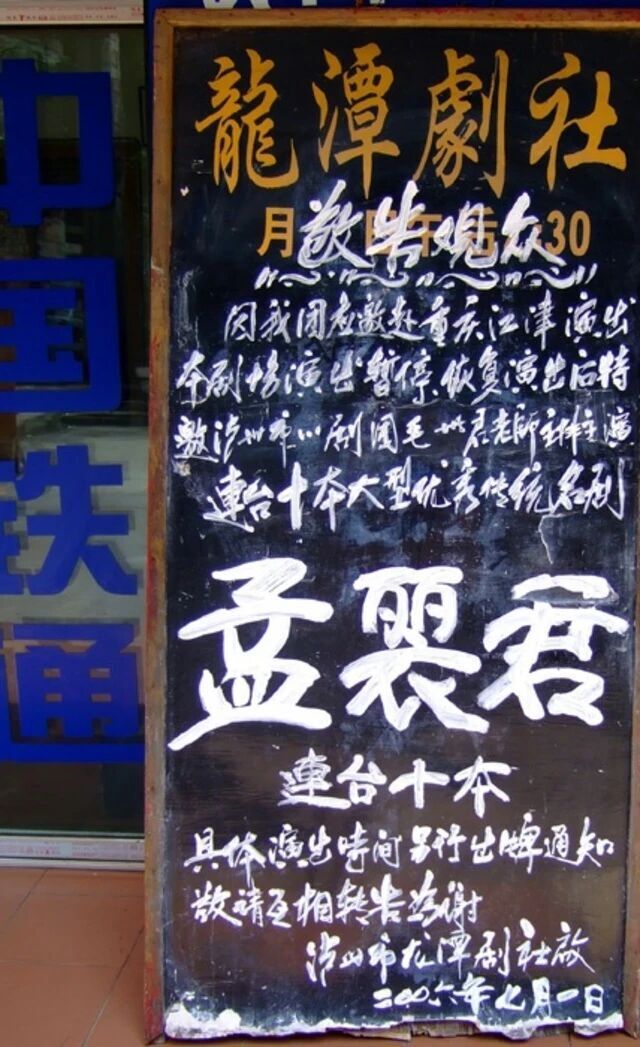 中国铁通
龍潭劇社
月 日午后 :30
敬告观众
因我团应邀赴重庆江津演出
本剧场演出暂停恢复演出后特
邀泸州市川剧团毛 君老師 主演
連台十本大型优秀传统名剧
孟麗君
連台十本
具体演出時间另行出牌通知
敬請互相转告为谢
泸州市龙潭剧社啟
二00六年七月一日